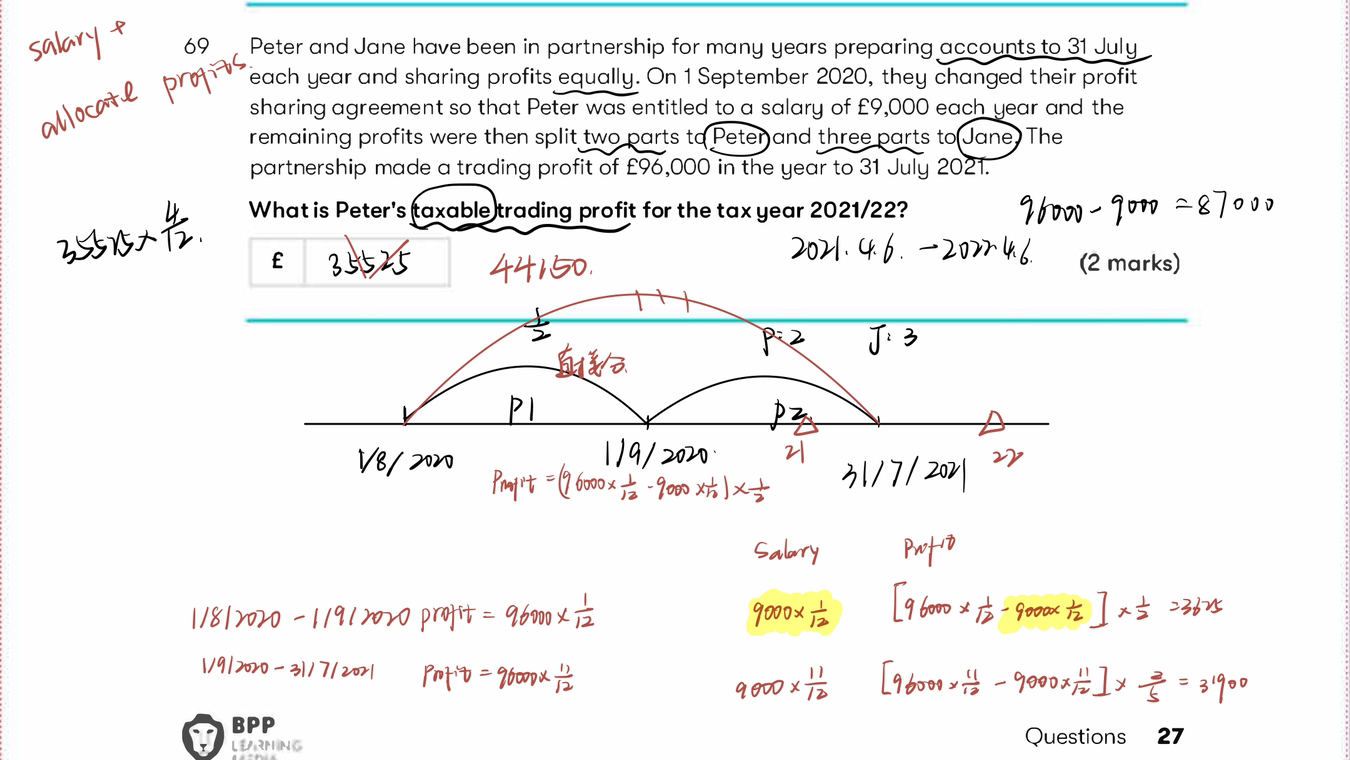 salary +
allocate profits.
69 Peter and Jane have been in partnership for many years preparing accounts to 31 July
each year and sharing profits equally. On 1 September 2020, they changed their profit
sharing agreement so that Peter was entitled to a salary of £9,000 each year and the
remaining profits were then split two parts to Peter and three parts to Jane. The
partnership made a trading profit of £96,000 in the year to 31 July 2021.
What is Peter's taxable trading profit for the tax year 2021/22?
96000 - 9000 = 87000
35525 × 4/12.
£ 35525
44150.
2021.4.6. → 2022 4.6.
(2 marks)
1/2
P: 2 J: 3
直接分
P1 P2
21 22
1/8/2020 1/9/2020. 31/7/2021
Profit = (96000 × 1/12 - 9000 × 1/12) × 1/2
Salary Profit
1/8/2020 - 1/9/2020 profit = 96000 × 1/12 9000 × 1/12 [96000 × 1/12 - 9000 × 1/12] × 1/2 = 3625
1/9/2020 - 31/7/2021 Profit = 96000 × 11/12 9000 × 11/12 [96000 × 11/12 - 9000 × 11/12] × 2/5 = 31900
BPP
LEARNING
MEDIA
Questions 27